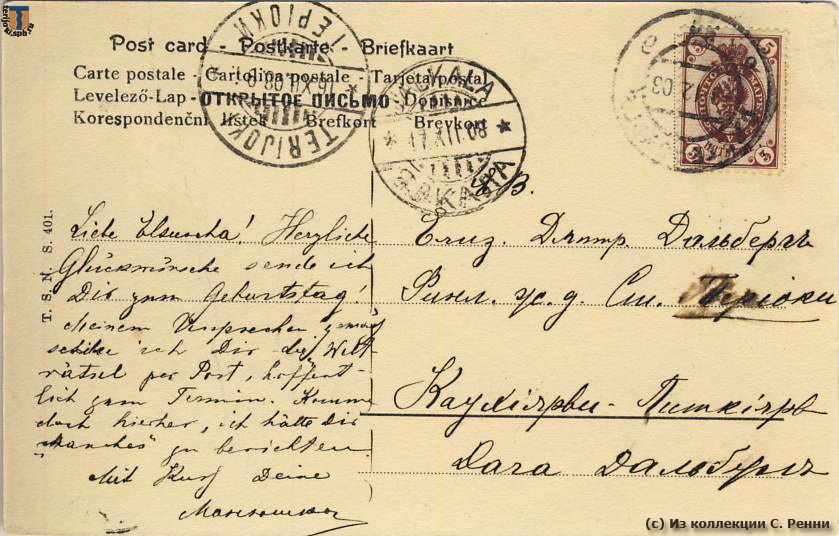 terijoki.spb.ru
Post card - Postkarte - Briefkaart
Carte postale - Cartolina postale - Tarjetarpostal
Levelező-Lap - ОТКРЫТОЕ ПИСЬМО - Dopisnice
Korespondenční lístek - Brefkort - Brevkort
TERIJOKI
16.XII.08
ТЕРІОКИ
17.XII.08
5
T. S. N. S. 401.
Liebe Elsuscha! Herzliche
Glückwünsche sende ich
Dir zum Geburtstag!
Meinem Versprechen gemäß
schicke ich Dir die "Welt-
rätsel per Post, hoffent-
lich zum Termin. Komme
doch hierher, ich hätte Dir
"Manches" zu berichten.
Mit Kuss Deine
Е.В.
Елиз. Дмитр. Дальбергъ
Финл. ж. д. Ст. Теріоки
Каухіярви - Питкіярв
Дача Дальбергъ
(c) Из коллекции С. Ренни